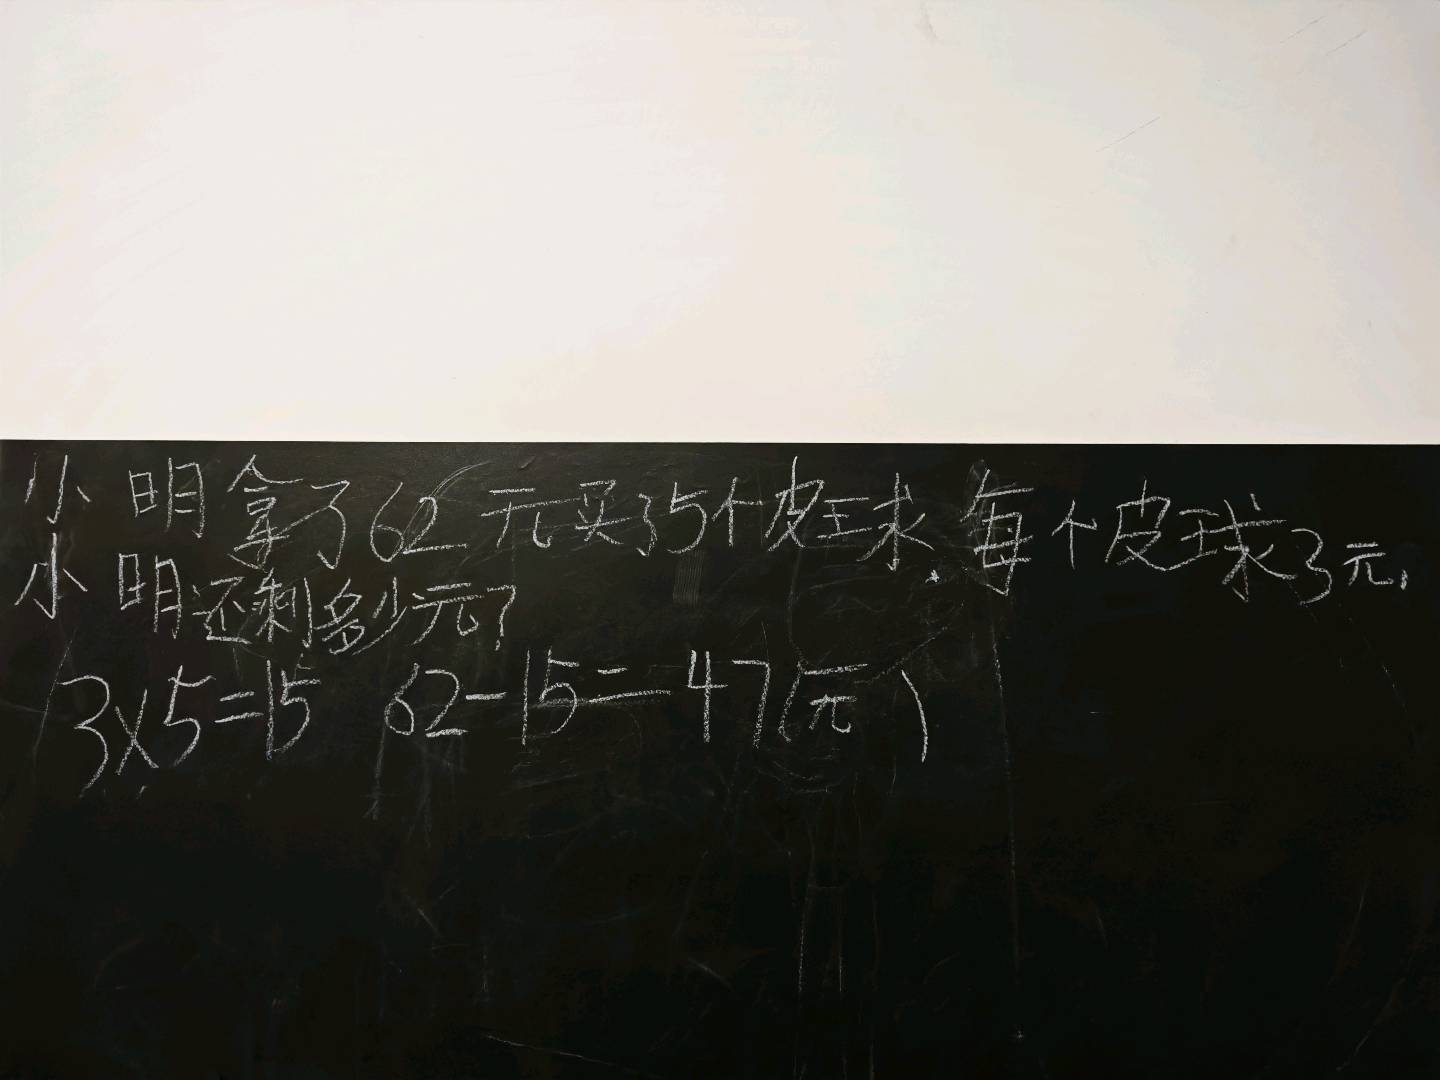 小明拿了62元买了5个皮球,每个皮球3元,
小明还剩多少元?
3×5=15 62-15=47(元)